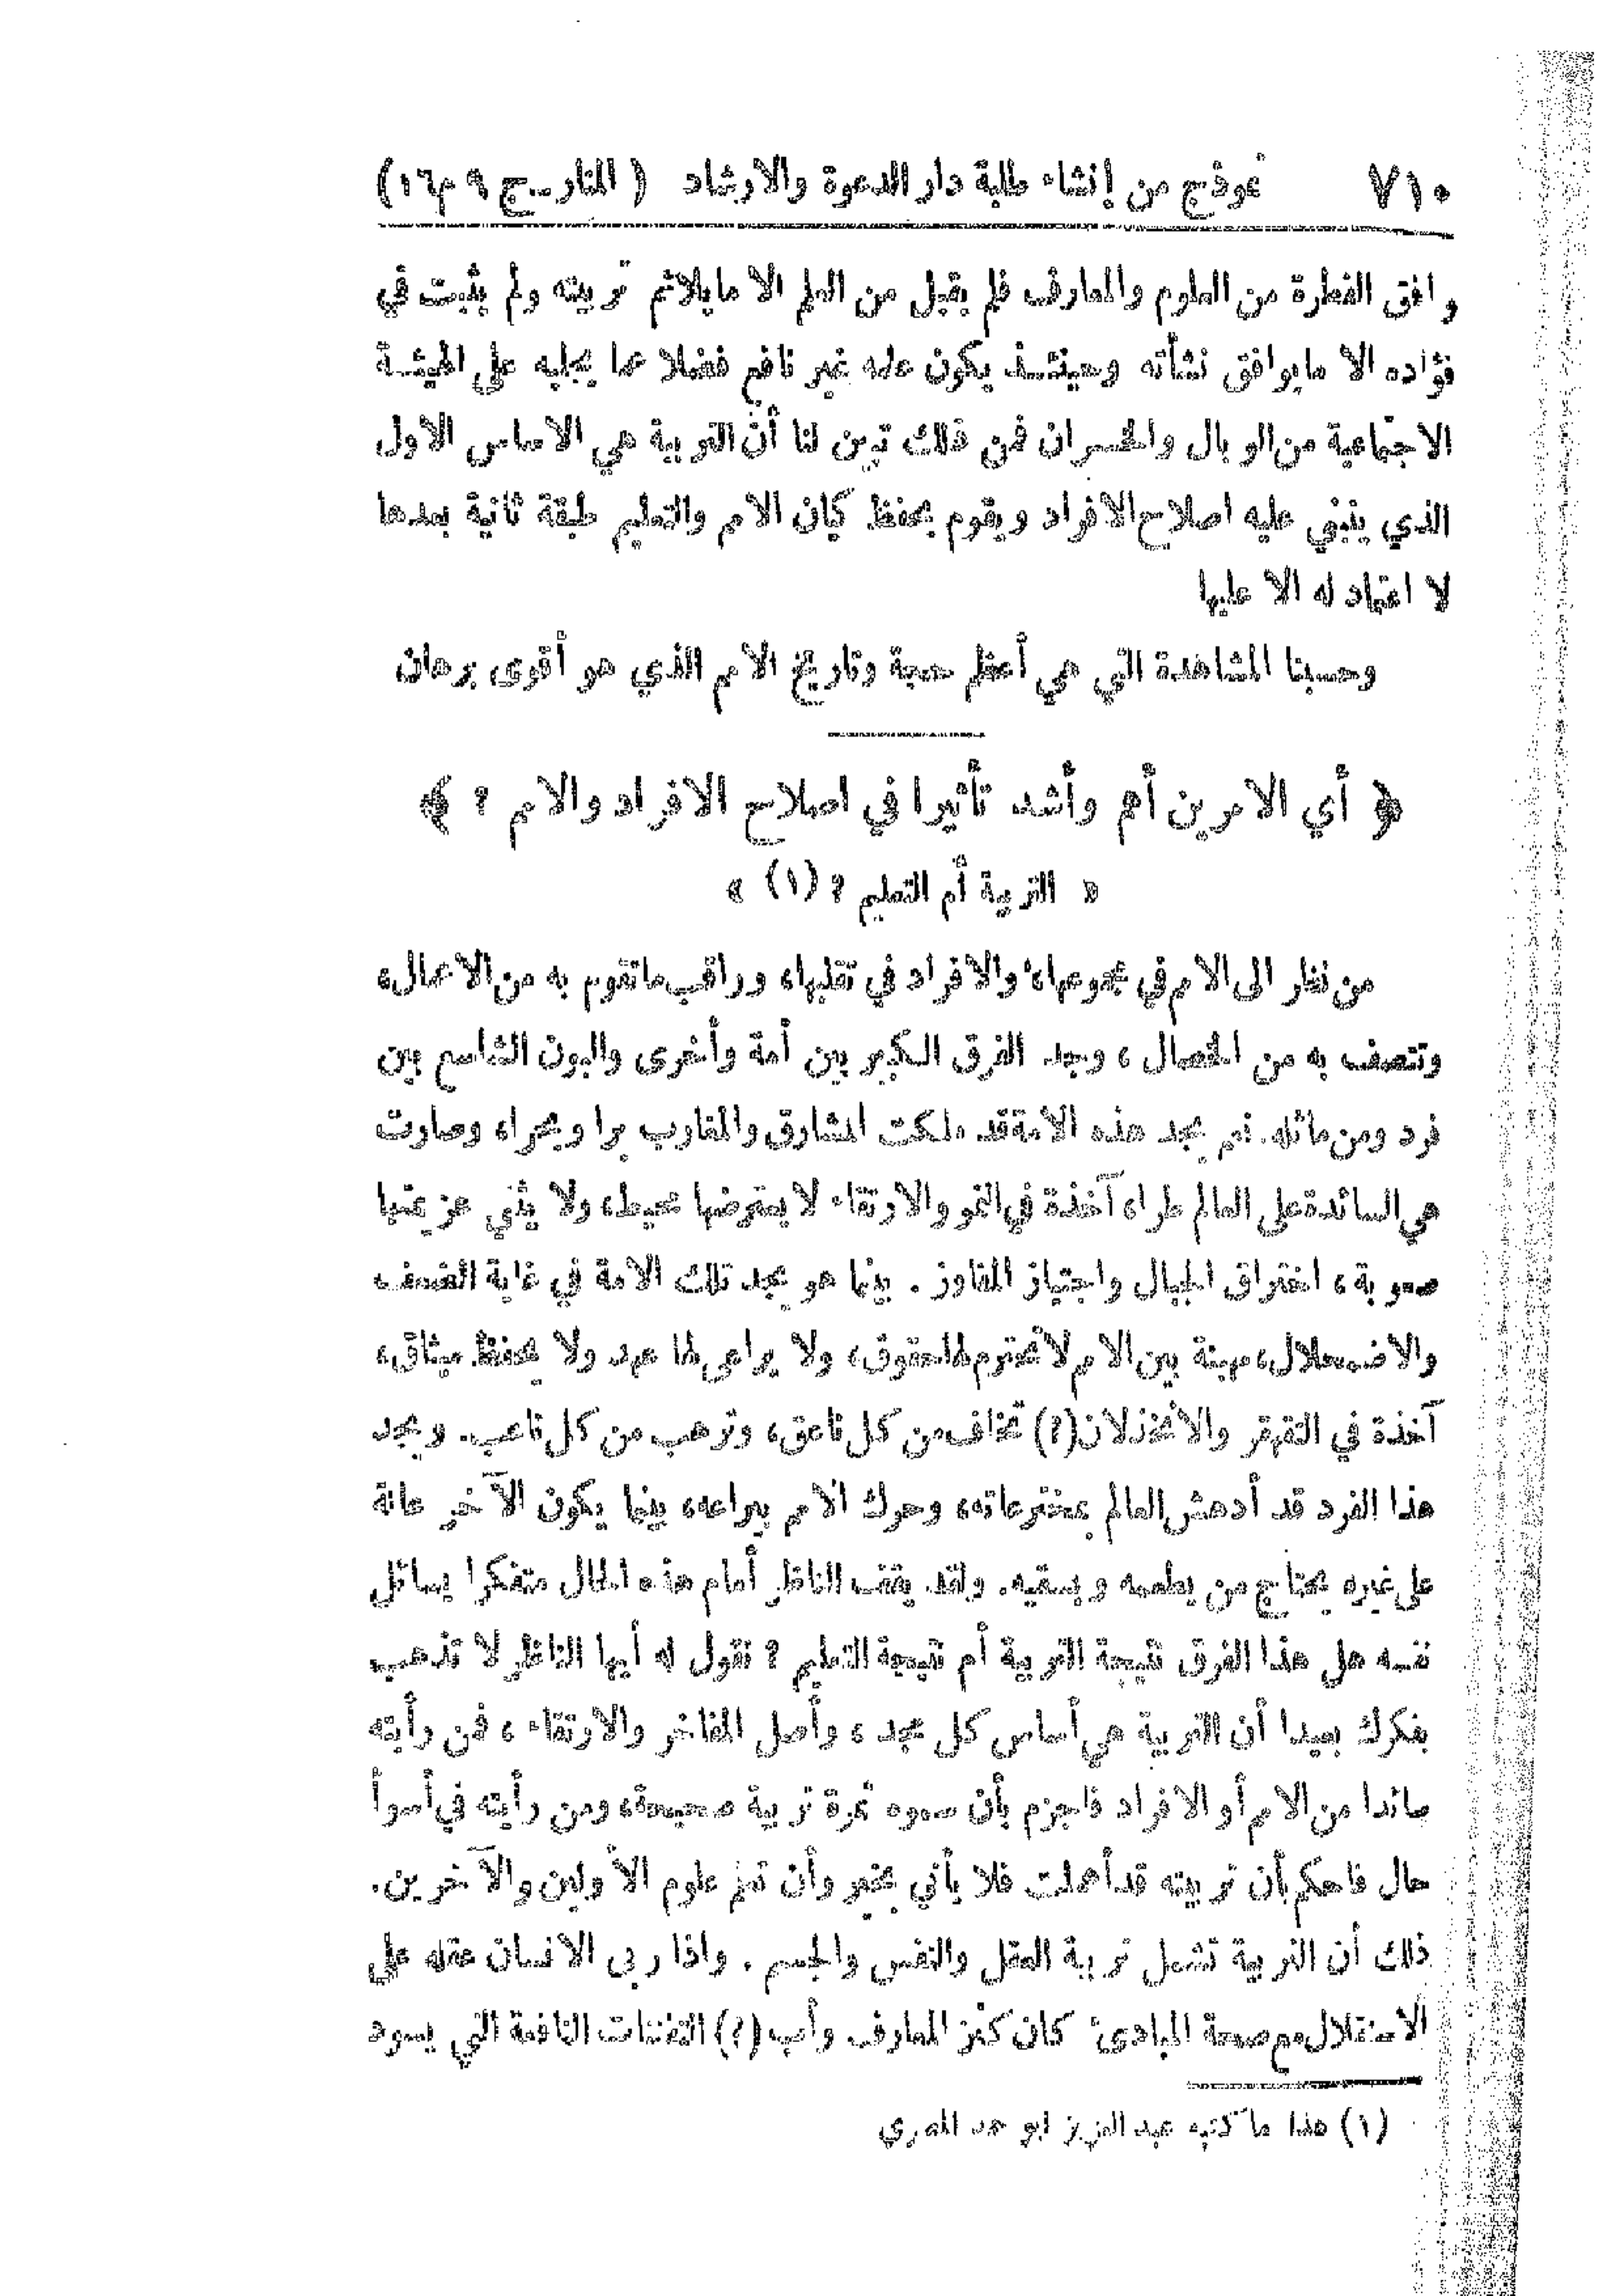 ٧١٠ نموذج من إنشاء طلبة دار الدعوة والارشاد ( المنار ــ ج ٩ م ١٦)
وافق الفطرة من العلوم والمعارف فلم يقبل من العلم الا ما يلائم تربيته ولم يثبت في
فؤاده الا ما يوافق نشأته وحينئذ يكون علمه غير نافع فضلا عما يجلبه على الهيئة
الاجتماعية من الوبال والخسران فمن ذلك تبين لنا أن التربية هي الاساس الاول
الذي ينبني عليه اصلاح الافراد ويقوم بحفظ كيان الامم والتعليم طبقة ثانية بعدها
لا اعتماد له الا عليها
وحسبنا المشاهدة التي هي أعظم حجة وتاريخ الامم الذي هو أقوى برهان
﴿ أي الامرين أهم وأشد تأثيرا في اصلاح الافراد والامم ؟ ﴾
« التربية أم التعليم ؟ (١) »
من نظر الى الامم في مجموعها، والافراد في تقلبها، وراقب ما تقوم به من الاعمال،
وتتصف به من الخصال ، وجد الفرق الكبير بين أمة وأخرى والبون الشاسع بين
فرد ومن ماثله. نعم يجد هذه الامة قد ملكت المشارق والمغارب برا وبحرا، وصارت
هي السائدة على العالم طرا، آخذة في النمو والارتقاء لا يعترضها محيط، ولا يثني عزيمتها
صعوبة، اختراق الجبال واجتياز المفاوز . بينما هو يجد تلك الامة في غاية الضعف
والاضمحلال، مهينة بين الامم لا تحترم لها حقوق، ولا يراعى لها عهد ولا يحفظ ميثاق،
آخذة في التقهقر والانخذلان(؟) تخاف من كل ناعق، وترهب من كل ناعب. ويجد
هذا الفرد قد أدهش العالم بمخترعاته، وحرك الامم بيراعه، بينما يكون الآخر عالة
على غيره يحتاج من يطعمه ويسقيه. ولقد يقف الناظر أمام هذه الحال متفكرا يسائل
نفسه هل هذا الفرق نتيجة التربية أم نتيجة التعليم ؟ نقول له أيها الناظر لا تذهب
بفكرك بعيدا أن التربية هي أساس كل مجد ، وأصل المفاخر والارتقاء ، فمن رأيته
سائدا من الامم أو الافراد فاجزم بأن سموه ثمرة تربية صحيحة، ومن رأيته في أسوأ
حال فاحكم بأن تربيته قد أهملت فلا يأتي بخير وأن تعلم علوم الأولين والآخرين.
ذلك أن التربية تشمل تربية العقل والنفس والجسم . واذا ربى الانسان عقله على
الاستقلال مع صحة المبادئ كان كنز المعارف وأب (؟) التفننات النافعة التي يسود
(١) هذا ما كتبه عبد العزيز ابو محمد المصري